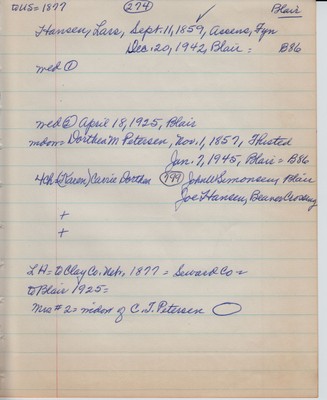 to US = 1877 (274) Blair
Hansen, Lars, Sept. 11, 1859, Assens, Fyn
Dec. 20, 1942, Blair = B86
wed ①
wed ② April 18, 1925, Blair
Dorthea M Petersen, Nov. 1, 1857, Thisted
Jan. 7, 1945, Blair = B86
4ch = (Karen) Carrie Dorthea (799) John W Simonsen, Blair
Joe Hansen, Beaver Crossing
+
+
LH = to Clay Co. Neb, 1877 = Seward Co =
to Blair 1925 =
Mrs #2 = widow of C. T. Petersen